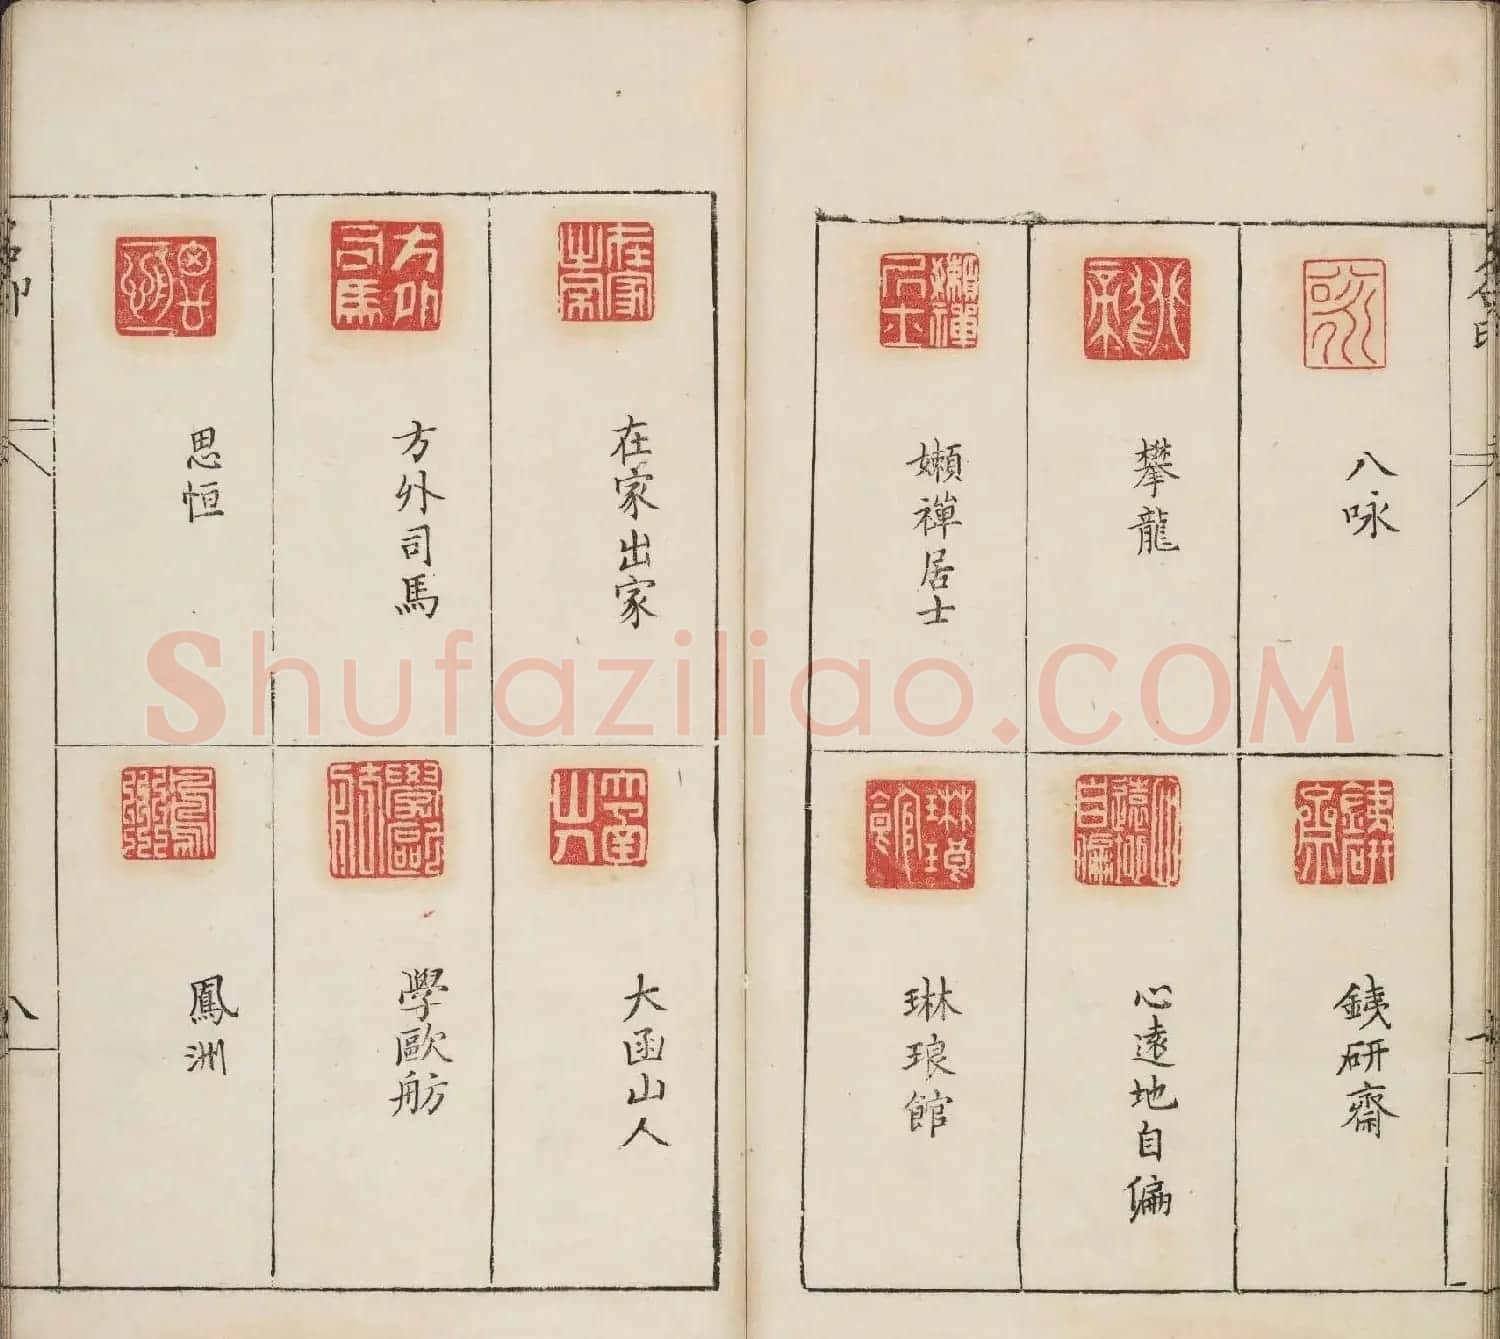 八咏
攀龍
嬾禪居士
銕研齋
心遠地自偏
琳琅館
在家出家
方外司馬
思恒
大函山人
學歐舫
鳳洲
八
Shufaziliao.COM